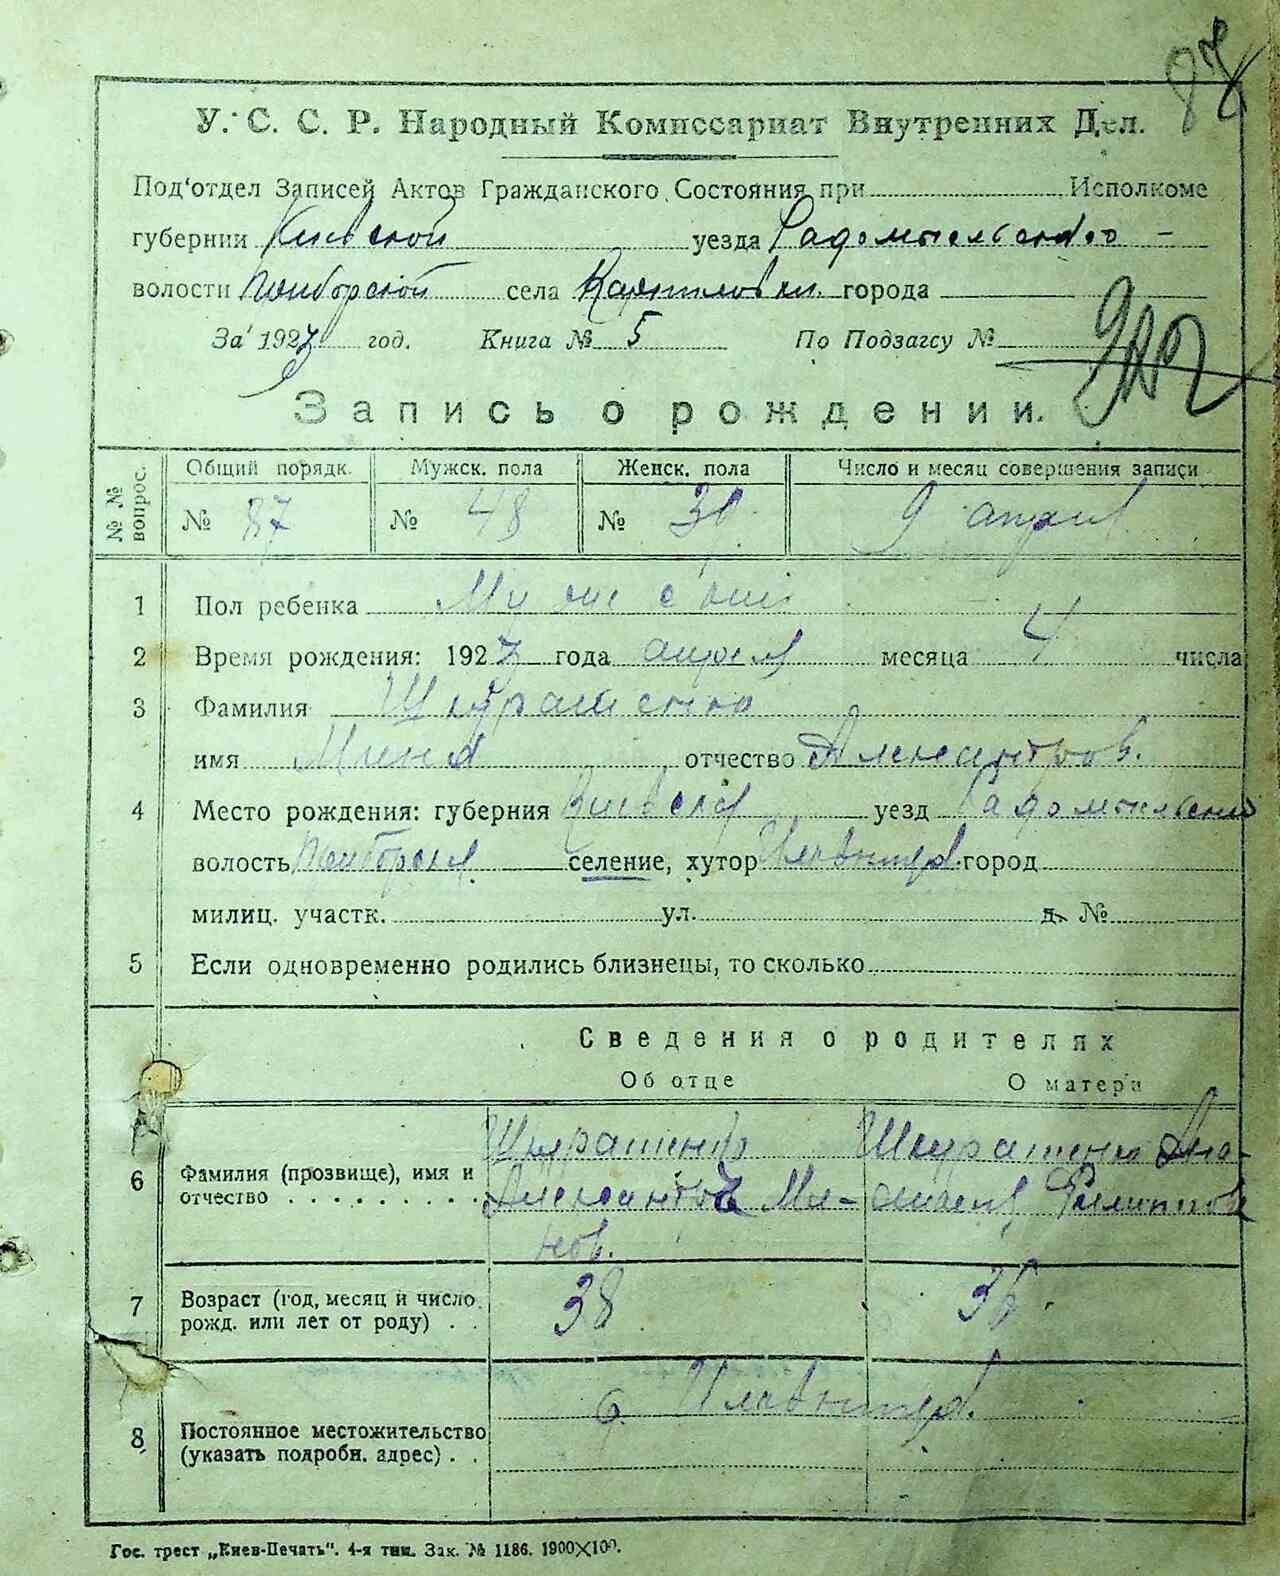 87
У. С. С. Р. Народный Комиссариат Внутренних Дел.
Под'отдел Записей Актов Гражданского Состояния при Исполкоме
губернии Киевской уезда Радомысльского
волости села города
За 1923 год. Книга № 5 По Подзагсу №
Запись о рождении.
№ № вопрос. Общий порядк. Мужск. пола Женск. пола Число и месяц совершения записи
№ 87 № 48 № 39 9 апреля
1 Пол ребенка Мужеский
2 Время рождения: 1923 года апреля месяца 4 числа
3 Фамилия Шкуратенко
имя Мина отчество Александров.
4 Место рождения: губерния Киевская уезд Радомысльский
волость селение, хутор город
милиц. участк. ул. д. №
5 Если одновременно родились близнецы, то сколько
Сведения о родителях
Об отце О матери
6 Фамилия (прозвище), имя и отчество
Шкуратенко Александр Ми-
нов.
Шкуратенко Ана-
стасия Филиппов
7 Возраст (год, месяц и число рожд. или лет от роду) . . 38 36.
8 Постоянное местожительство (указать подробн. адрес) . . с.
Гос. трест „Киев-Печать". 4-я тип. Зак. № 1186. 1900×100.